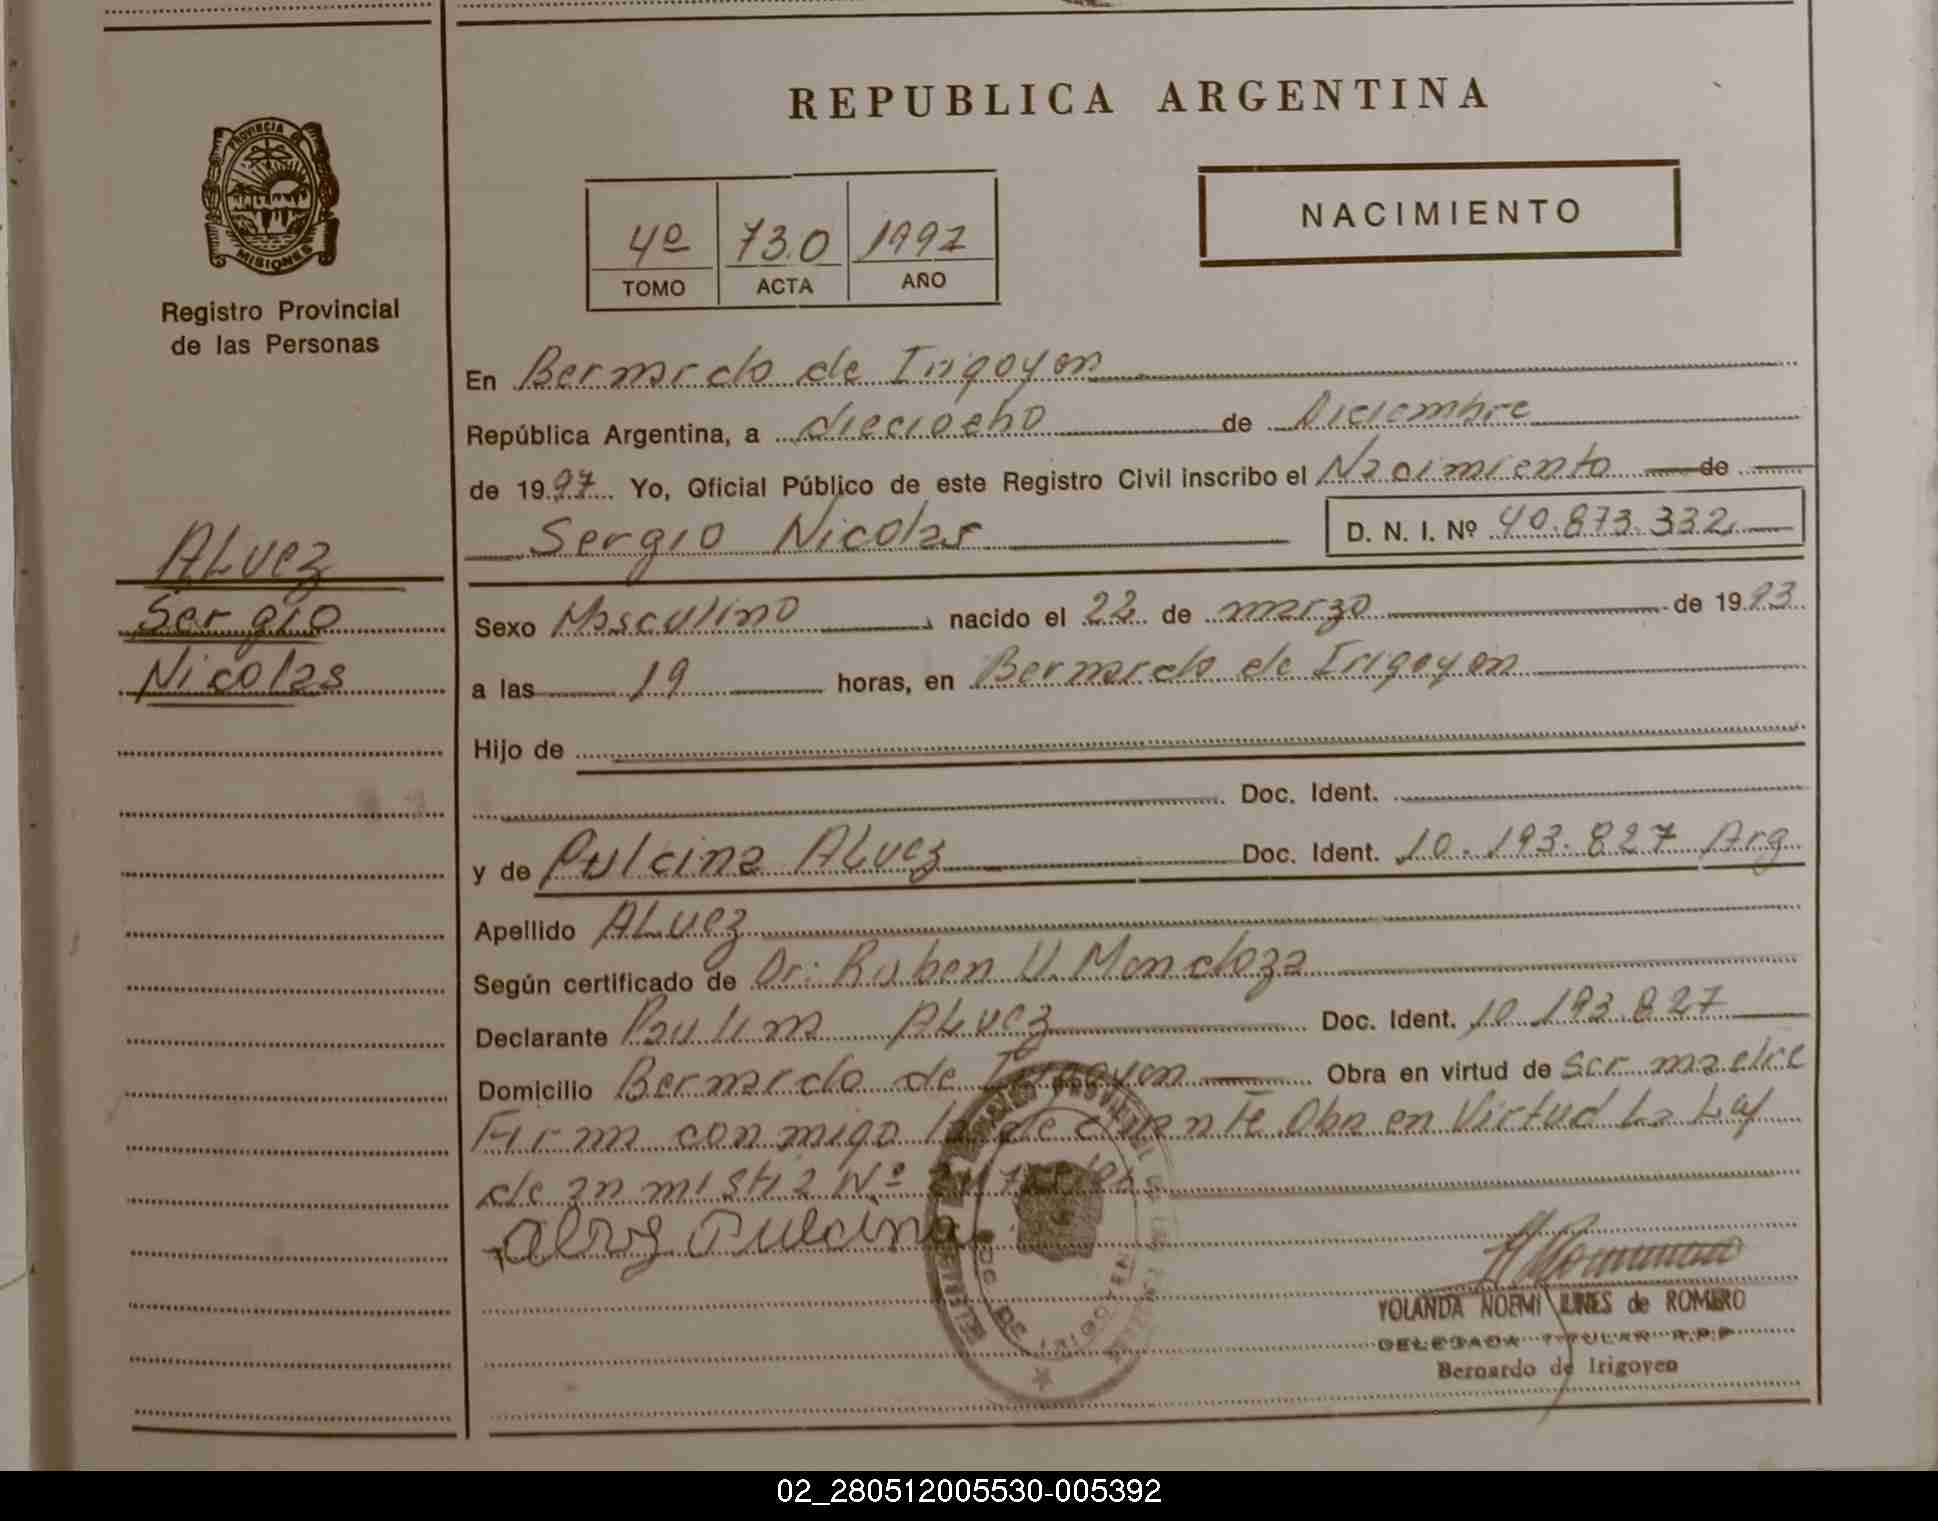 REPUBLICA ARGENTINA
PROVINCIA
MISIONES
Registro Provincial
de las Personas
NACIMIENTO
4º 730 1997
TOMO ACTA AÑO
En Bernardo de Irigoyen
República Argentina, a dieciocho de Diciembre
de 1997 Yo, Oficial Público de este Registro Civil inscribo el Nacimiento de
Sergio Nicolas D. N. I. Nº 40.873.332
ALvez
Sergio
Nicolas
Sexo Masculino nacido el 22 de marzo de 1993
a las 19 horas, en Bernardo de Irigoyen
Hijo de
Doc. Ident.
y de Pulcina ALvez Doc. Ident. 10.193.827 Arg
Apellido ALvez
Según certificado de Dr: Ruben V. Mendoza
Declarante Paulina ALvez Doc. Ident. 10.193.827
Domicilio Bernardo de Irigoyen Obra en virtud de Ser madre
Firma conmigo la declarante Obra en Virtud La Ley
de amnistia Nº
Pulcina
DE IRIGOYEN
YOLANDA NOEMI de ROMERO
DELEGADA TITULAR R.P.P
Bernardo de Irigoyen
02_280512005530-005392